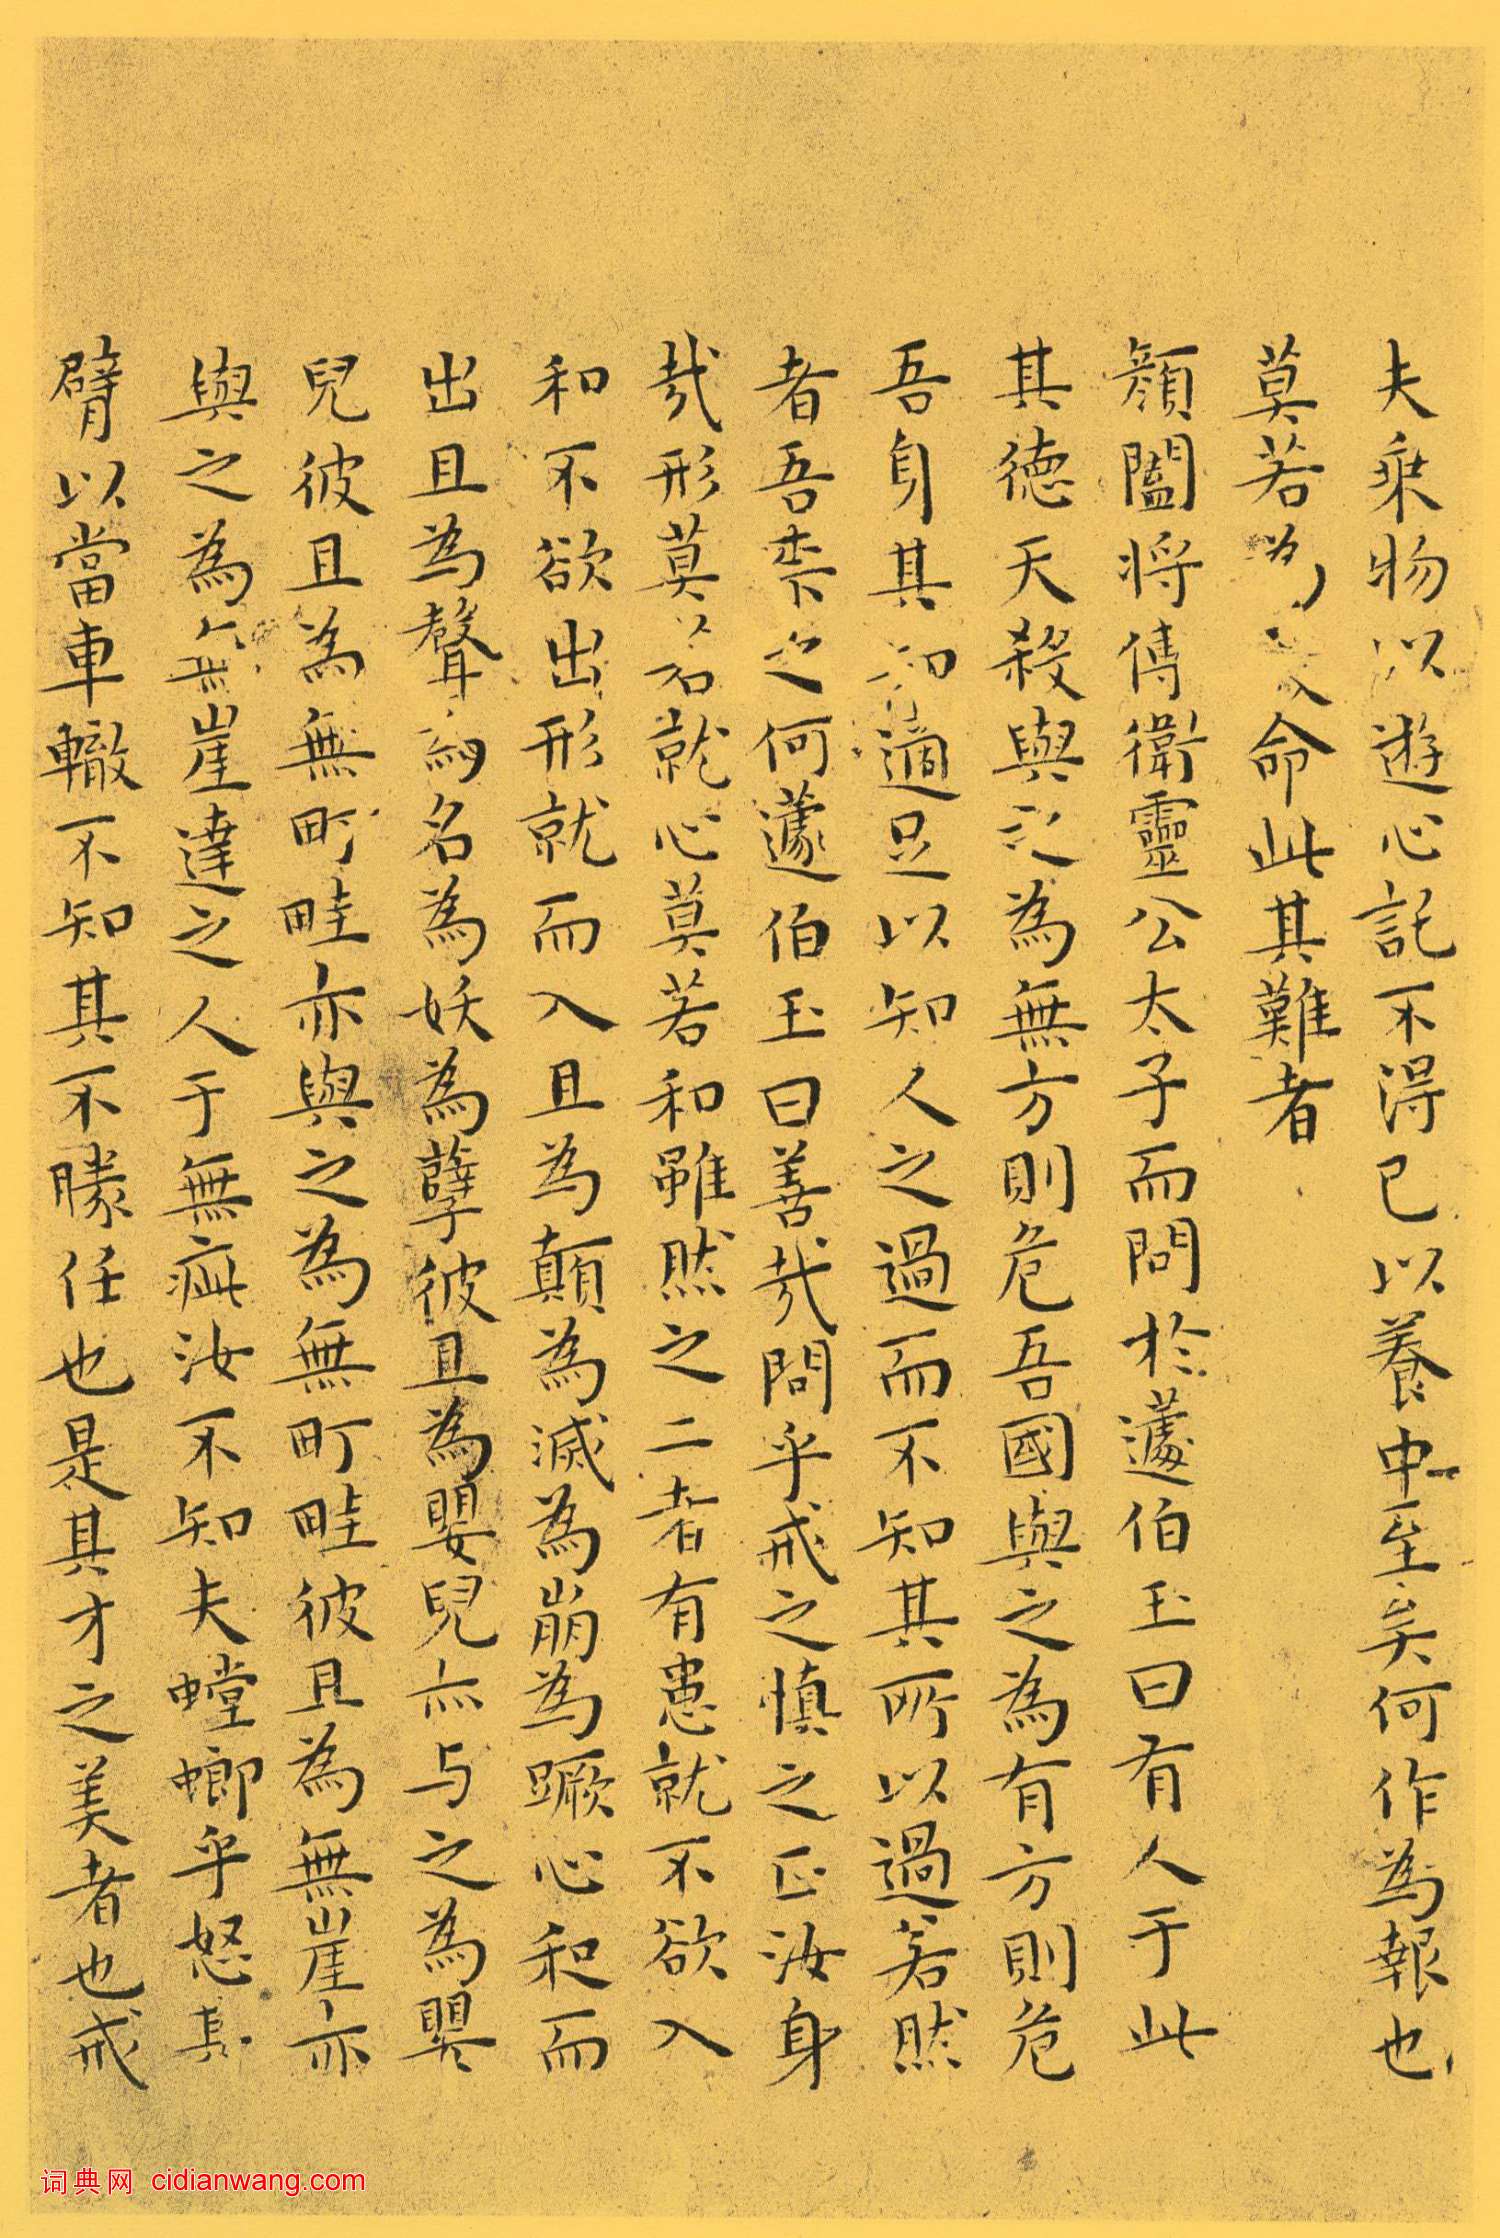 夫乘物以遊心託不得已以養中至矣何作為報也
莫若為致命此其難者
顏闔將傅衛靈公太子而問於蘧伯玉曰有人于此
其德天殺與之為無方則危吾國與之為有方則危
吾身其知適足以知人之過而不知其所以過若然
者吾柰之何蘧伯玉曰善哉問乎戒之慎之正汝身
哉形莫若就心莫若和雖然之二者有患就不欲入
和不欲出形就而入且為顛為滅為崩為蹶心和而
出且為聲為名為妖為孽彼且為嬰兒亦与之為嬰
兒彼且為無町畦亦與之為無町畦彼且為無崖亦
與之為無崖達之人于無疵汝不知夫螳螂乎怒其
臂以當車轍不知其不勝任也是其才之美者也戒
词典网 cidianwang.com